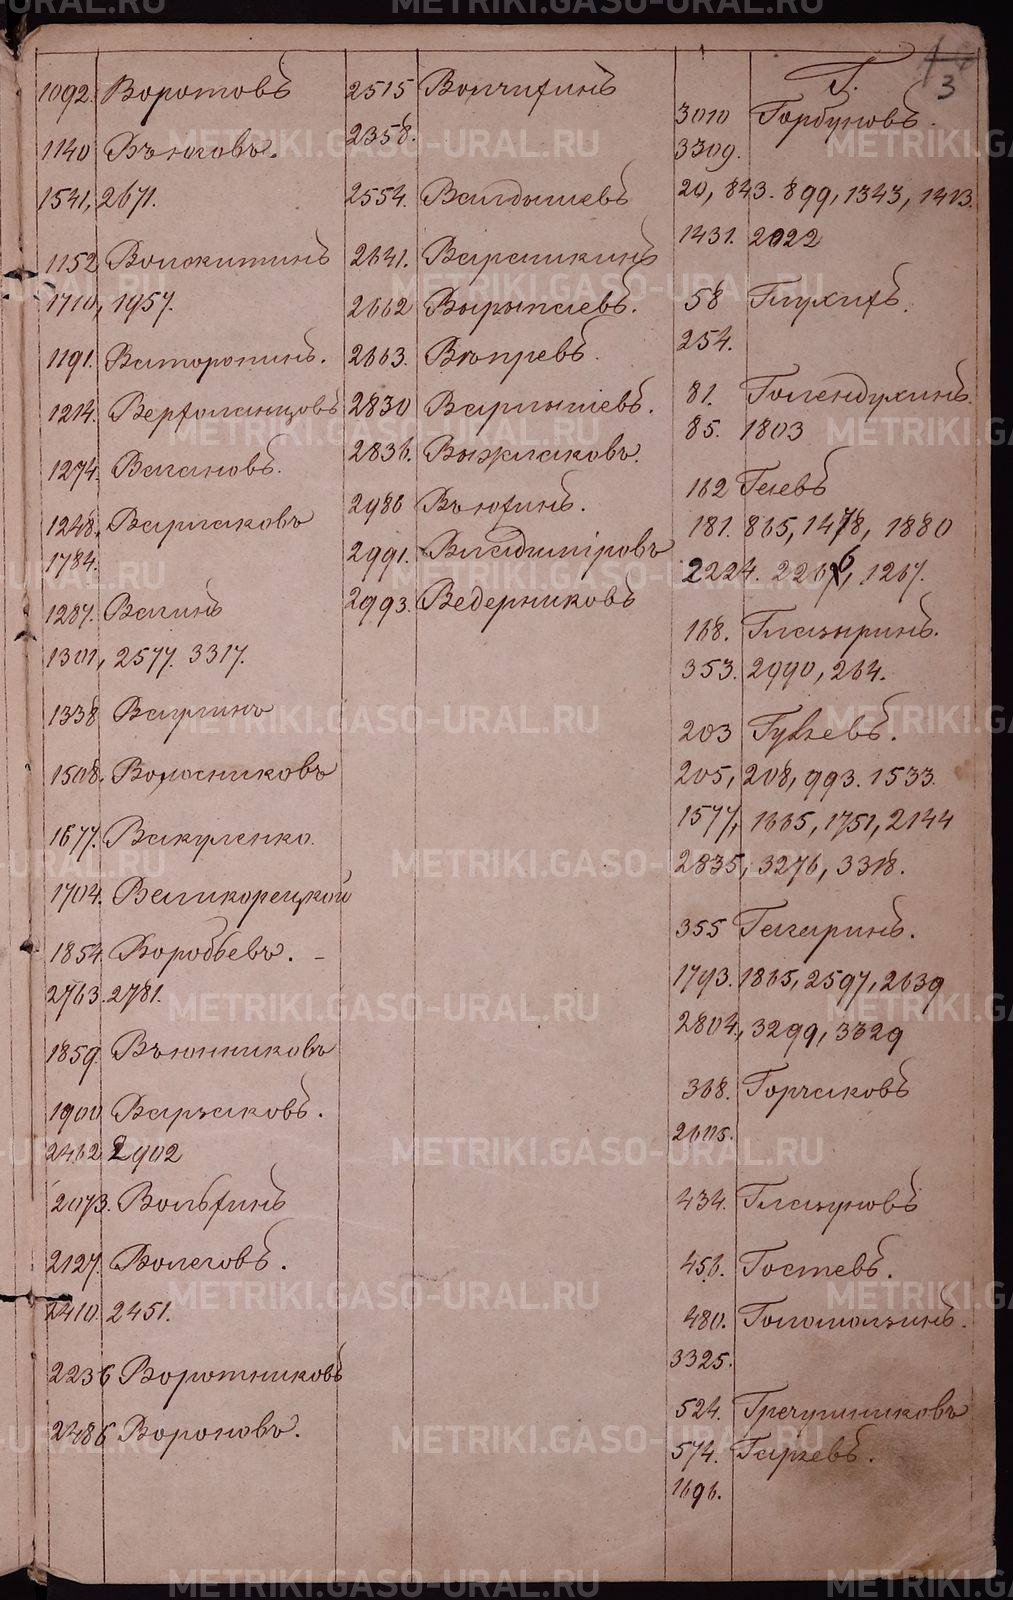 3
1092. Воротовъ
1140 Вьюговъ.
1541, 2671.
1152 Волокитинъ
1710, 1957.
1191. Ваторопинъ.
1214. Верхоланцовъ
1274. Вагановъ.
1248. Варлаковъ
1784.
1287. Вагинъ
1301, 2577. 3317.
1338 Ваулинъ
1508. Волосниковъ
1677. Вакуленко.
1704. Великорецкой
1854. Воробьевъ.
2763. 2781.
1859. Вьюнниковъ
1900 Варзаковъ.
2462 2902
2073. Вольхинъ
2127. Волеговъ.
2410. 2451.
2236 Воротниковъ
2486 Вороновъ.
2515 Волчихинъ
2358.
2554. Валдышевъ
2641. Вараникинъ
2662 Вырыпаевъ.
2663. Вепревъ.
2830 Варлышевъ.
2836. Выжлаковъ.
2986 Вьюхинъ.
2991. Владимiровъ
2993. Ведерниковъ
Г.
3010 Горбуновъ.
3309.
20, 843. 899, 1343, 1413.
1431. 2022
58 Глухихъ.
254.
81. Голендухинъ
85. 1803
162 Гаевъ
181. 865, 1478, 1880
2224. 2266, 1267.
168. Глазыринъ.
353. 2990, 264.
203 Гуляевъ.
205, 208, 993. 1533.
1577, 1665, 1751, 2144
2835, 3276, 3318.
355 Гагаринъ.
1793. 1865, 2597, 2639
2804, 3299, 3329
368. Горчаковъ
2605.
434. Глазуновъ
456. Гостевъ.
480. Голомолзинъ.
3325.
524. Гречушниковъ
574. Гаревъ.
1696.
METRIKI.GASO-URAL.RU